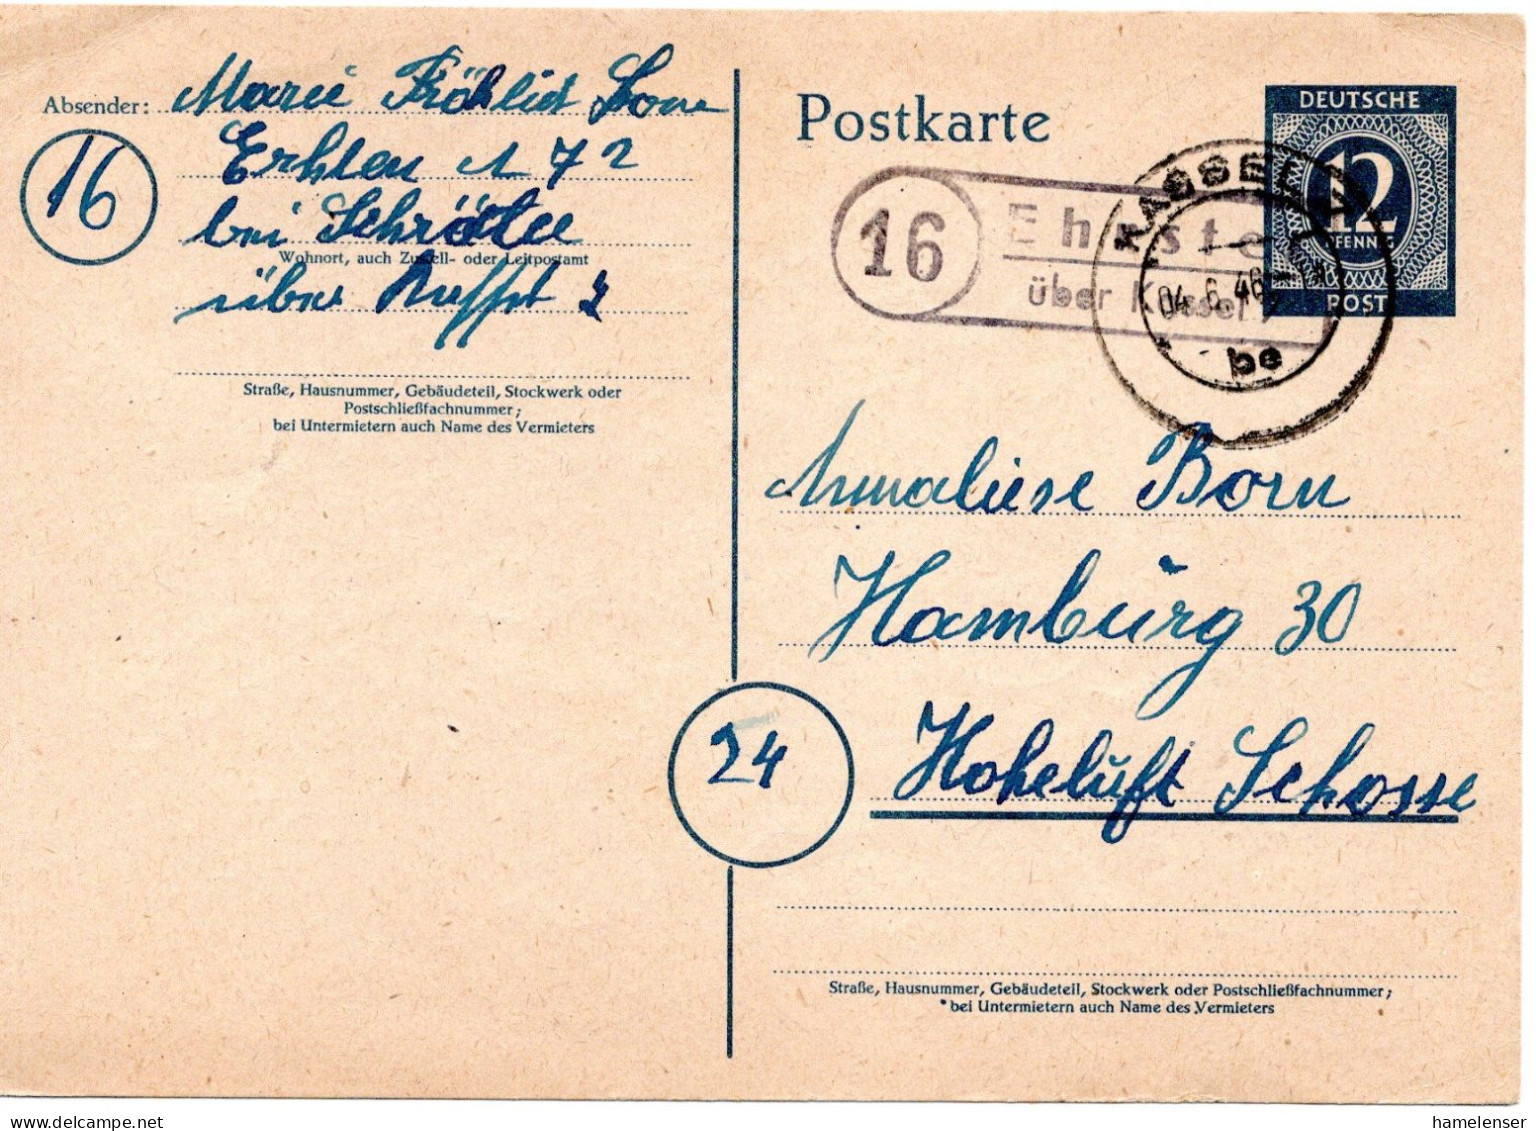 Absender: Marie Fröhlich
16
bei
Wohnort, auch Zustell- oder Leitpostamt
über
Straße, Hausnummer, Gebäudeteil, Stockwerk oder
Postschließfachnummer;
bei Untermietern auch Name des Vermieters
Postkarte
DEUTSCHE
12
PFENNIG
POST
16
Ehrste
über Kassel 7
KASSEL
04.6.46
be
Annaliese Born
Hamburg 30
24
Hoheluft Schosse
Straße, Hausnummer, Gebäudeteil, Stockwerk oder Postschließfachnummer;
bei Untermietern auch Name des Vermieters
hamelenser